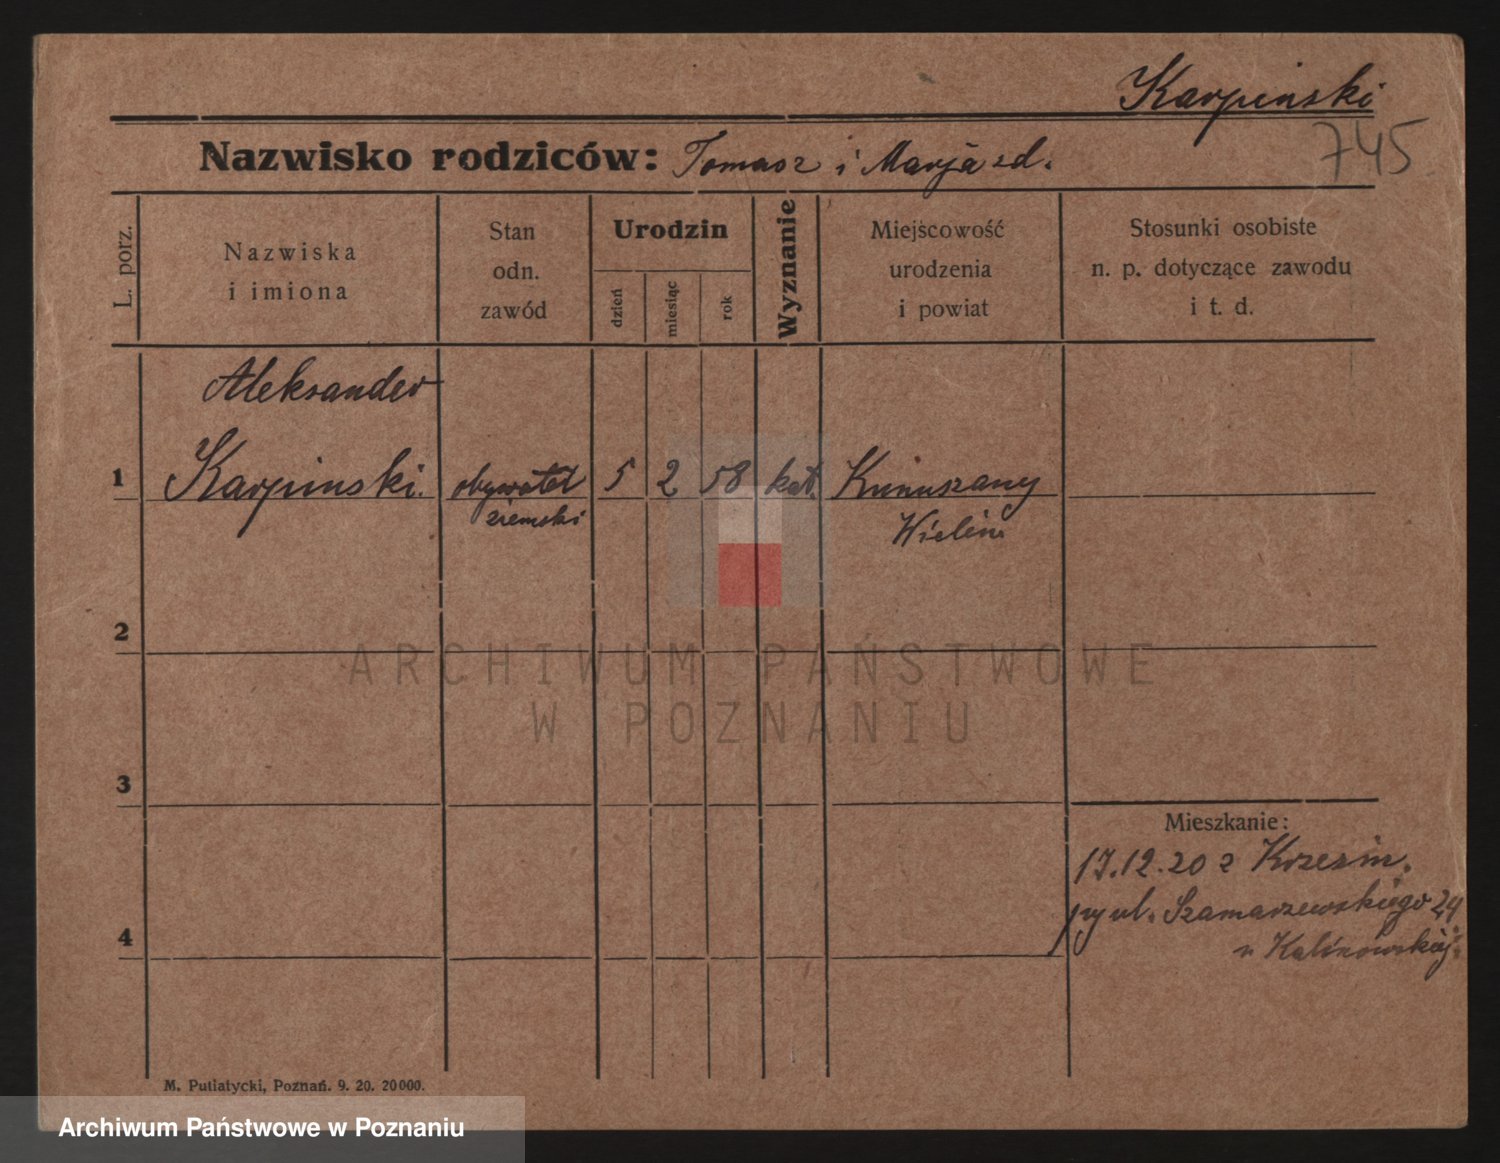 Karpinski
745
Nazwisko rodziców: Tomasz i Marja zd.
L. porz.
Nazwiska
i imiona
Stan
odn.
zawód
Urodzin
dzień
miesiąc
rok
Wyznanie
Miejscowość
urodzenia
i powiat
Stosunki osobiste
n. p. dotyczące zawodu
i t. d.
Aleksander
1 Karpinski. obywatel 5 2 58 kat.
ziemski
2
ARCHIWUM PAŃSTWOWE
W POZNANIU
3
Mieszkanie:
17.12.20 z Krzesin.
ul. Szamarzewskiego 24
4
u Kalinowskiej.
M. Putiatycki, Poznań. 9. 20. 20000.
Archiwum Państwowe w Poznaniu